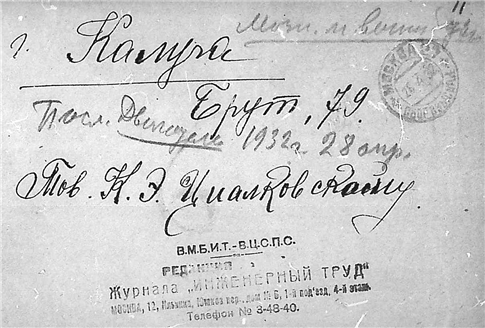 г. Калуга
Брут, 79.
Посл. Двигатель 1932 г. 28 апр.
Тов. К. Э. Циалковскому
В.М.Б.И.Т.-В.Ц.С.П.С.
РЕДАКЦИЯ
Журнала „ИНЖЕНЕРНЫЙ ТРУД"
МОСКВА, 12, Ильинка, Юшков пер. дом № 6, 1-й под'езд, 4-й этаж.
Телефон № 3-48-40.